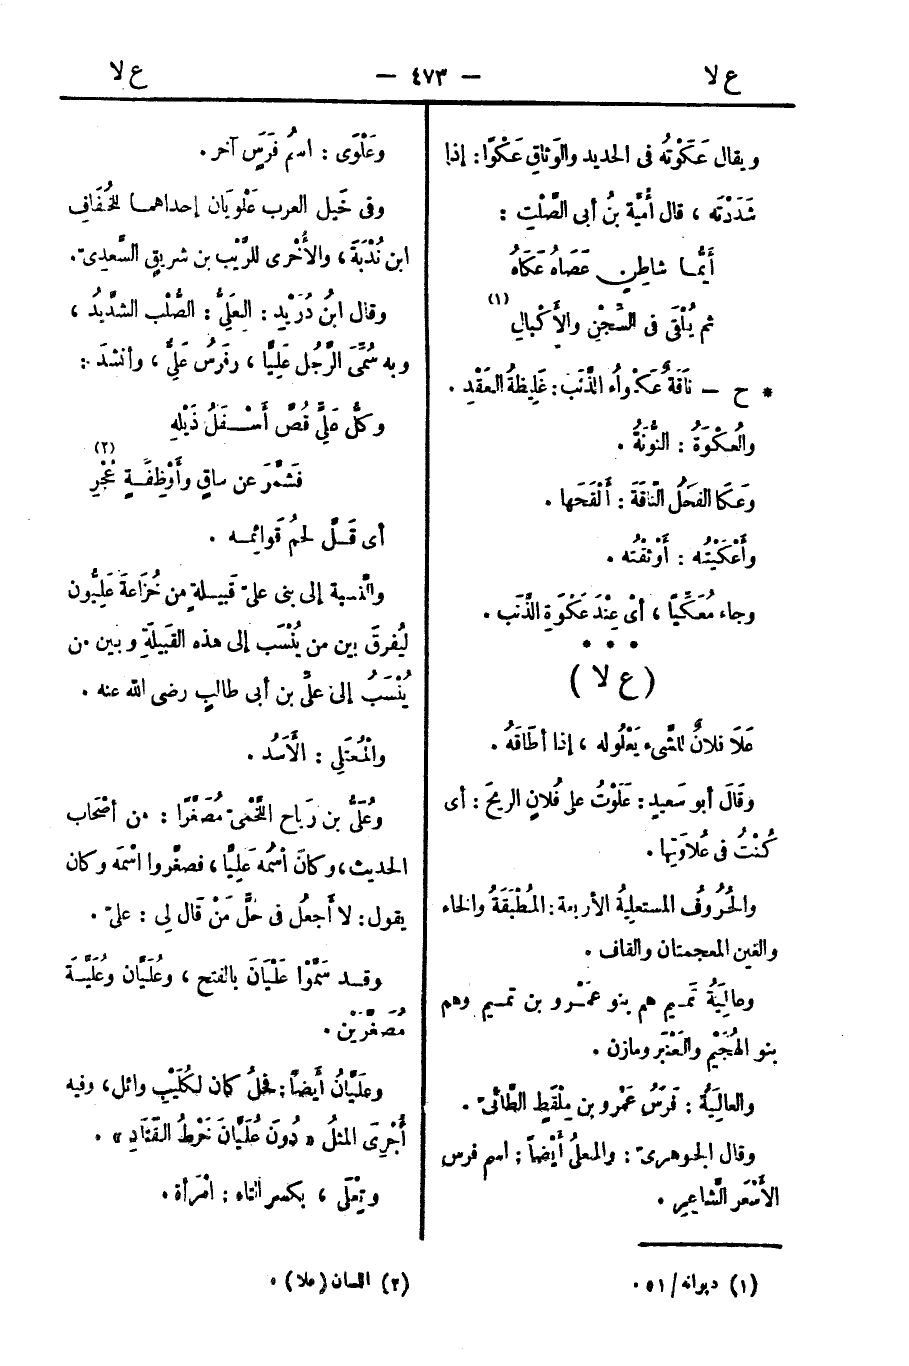 ع لا
— ٤٧٣ —
ع لا
ويقال عَكَوْتُه فى الحديد والوَثاقِ عَكْوًا: إذا
شَدَدْتَه ، قال أُمَيَّة بنُ أبى الصَّلْتِ :
أَيُّما شاطِنٍ عَصَاهُ عَكَاهُ
ثم يُلْقَى فى السِّجْنِ والأَكْبالِ (١)
* ح — نَاقَةٌ عَكْواءُ الذَّنَب: غَلِيظةُ العَقْدِ .
والعُكْوَةُ : النُّونَةُ .
وعَكَا الفَحْلُ النَّاقَةَ : أَلْقَحَها .
وأَعْكَيْتُه : أَوْثَقْتُه .
وجاء مُعَكِّيًا ، أىْ عِنْدَ عَكْوَةِ الذَّنَب .
* * *
( ع لا )
عَلَا فلانٌ للشَّىء يَعْلُوله ، إذا أطَاقَهُ .
وقَالَ أبو سَعِيدٍ : عَلَوْتُ على فُلانٍ الرِيحَ : أى
كُنْتُ فى عُلاوَتِها .
والحُرُوفُ المستعليةُ الأربعة : المُطْبَقَةُ والخاء
والغين المعجمتان والقاف .
وعالِيَةُ تَمِيم هم بنو عَمْرو بن تميم وهم
بنو الهُجَيْم والعَنْبَر ومازن .
والعالِيَةُ : فَرَسُ عَمْرو بن مِلْقَطٍ الطَّائىّ .
وقال الجوهرىّ : والمعلىَّ أيْضاً : اسم فرس
الأَسْعَر الشَّاعِرِ .
(١) ديوانه / ٥١ .
وعَلْوَى : اسمُ فَرَسٍ آخر .
وفى خَيل العرب عَلْوَيَان إحداهما لِخُفَافِ
ابن نُدْبَةَ ، والأُخْرى للرَّيْب بن شريقٍ السَّعْدِىّ .
وقال ابنُ دُرَيْدٍ : العَلِىُّ : الصُّلْب الشدِّيدُ ،
وبه سُمِّىَ الرَّجُل عَلِيًّا ، وفَرسُ عَلِىٌّ ، وأنشدَ :
وكلُّ عَلِىٍّ قُصَّ أَسْفَلُ ذَيْلِهِ
فَشَمَّرَ عن ساقٍ وأَوْظِفَةٍ عُجْرِ (٢)
أى قَلَّ لحمُ قَوائِمِه .
والنسبة إلى بنى علىّ قَبيلةٍ من خُزَاعَةَ عَلِيُّون
لِيُفرقَ بين من يُنْسَب إلى هذه القَبيلَةِ وبين من
يُنْسَبُ إلى علىِّ بن أبى طالبٍ رضى الله عنه .
والمُعْتَلِى : الأَسَدُ .
وعُلَىُّ بن رَبَاحِ اللَّخْمِىّ مُصَغَّرًا : من أصْحَاب
الحديث، وكانَ أسْمُه عَلِيًّا ، فصغَّروا اسْمَه وكان
يقول: لا أَجعلُ فى حِلٍّ مَنْ قَال لِى : علىّ .
وقد سَمَّوْا عَلْيَانَ بالفتح ، وعُلَيَّان وعُلَيَّةَ
مُصَغَّرَيْن .
وعلَيَّانُ أيضاً : فحلٌ كان لِكُلَيْبِ وائل ، وفيه
أُجْرِىَ المثلُ « دُونَ عُلَيَّان خَرْطُ القَتَادِ » .
وتِعْلَى ، بكسر التاء : امْرَأة .
(٢) اللسان (علا) .